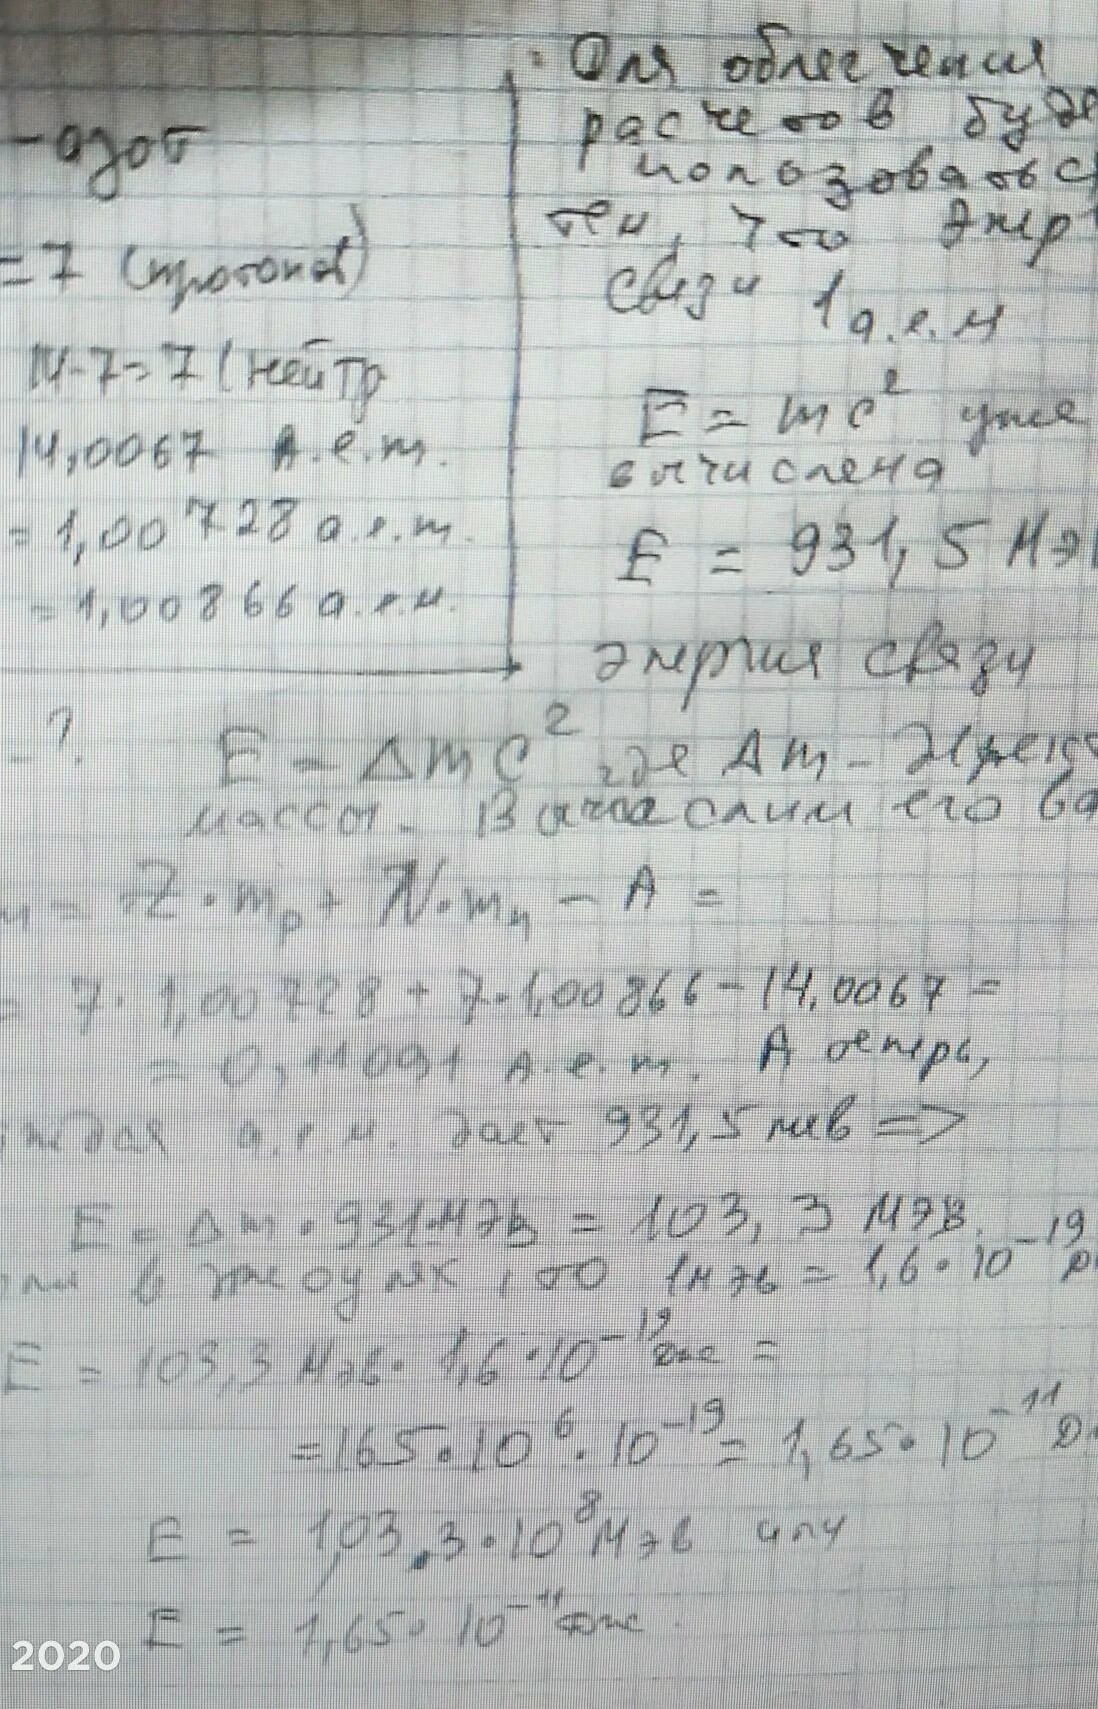 - азот
= 7 (протонов)
14-7=7 (нейтр
14,0067 А.е.m.
= 1,00728 а.е.m.
= 1,00866 а.е.м.
- ?
Для облегчения
расчетов буде
пользоватьс
тем, что энер
связи 1 а.е.м
E = mc² уже
вычислена
E = 931,5 Мэ
энергия связи
E = ΔmC² где Δm -
массы. Вычислим его
= Z·mp + N·mn - A =
= 7·1,00728 + 7·1,00866 - 14,0067 =
= 0,11091 А.е.m. А теперь,
а.е.м. дает 931,5 мев =>
E = Δm·931·МэВ = 103,3 МэВ.
в джоулях 1мэв = 1,6·10⁻¹⁹ Д
E = 103,3 Мэв·1,6·10⁻¹⁹дж =
= 165·10⁶·10⁻¹⁹ = 1,65·10⁻¹¹ Д
E = 1,03,3·10⁸Мэв или
E = 1,65·10⁻¹¹дж.
2020